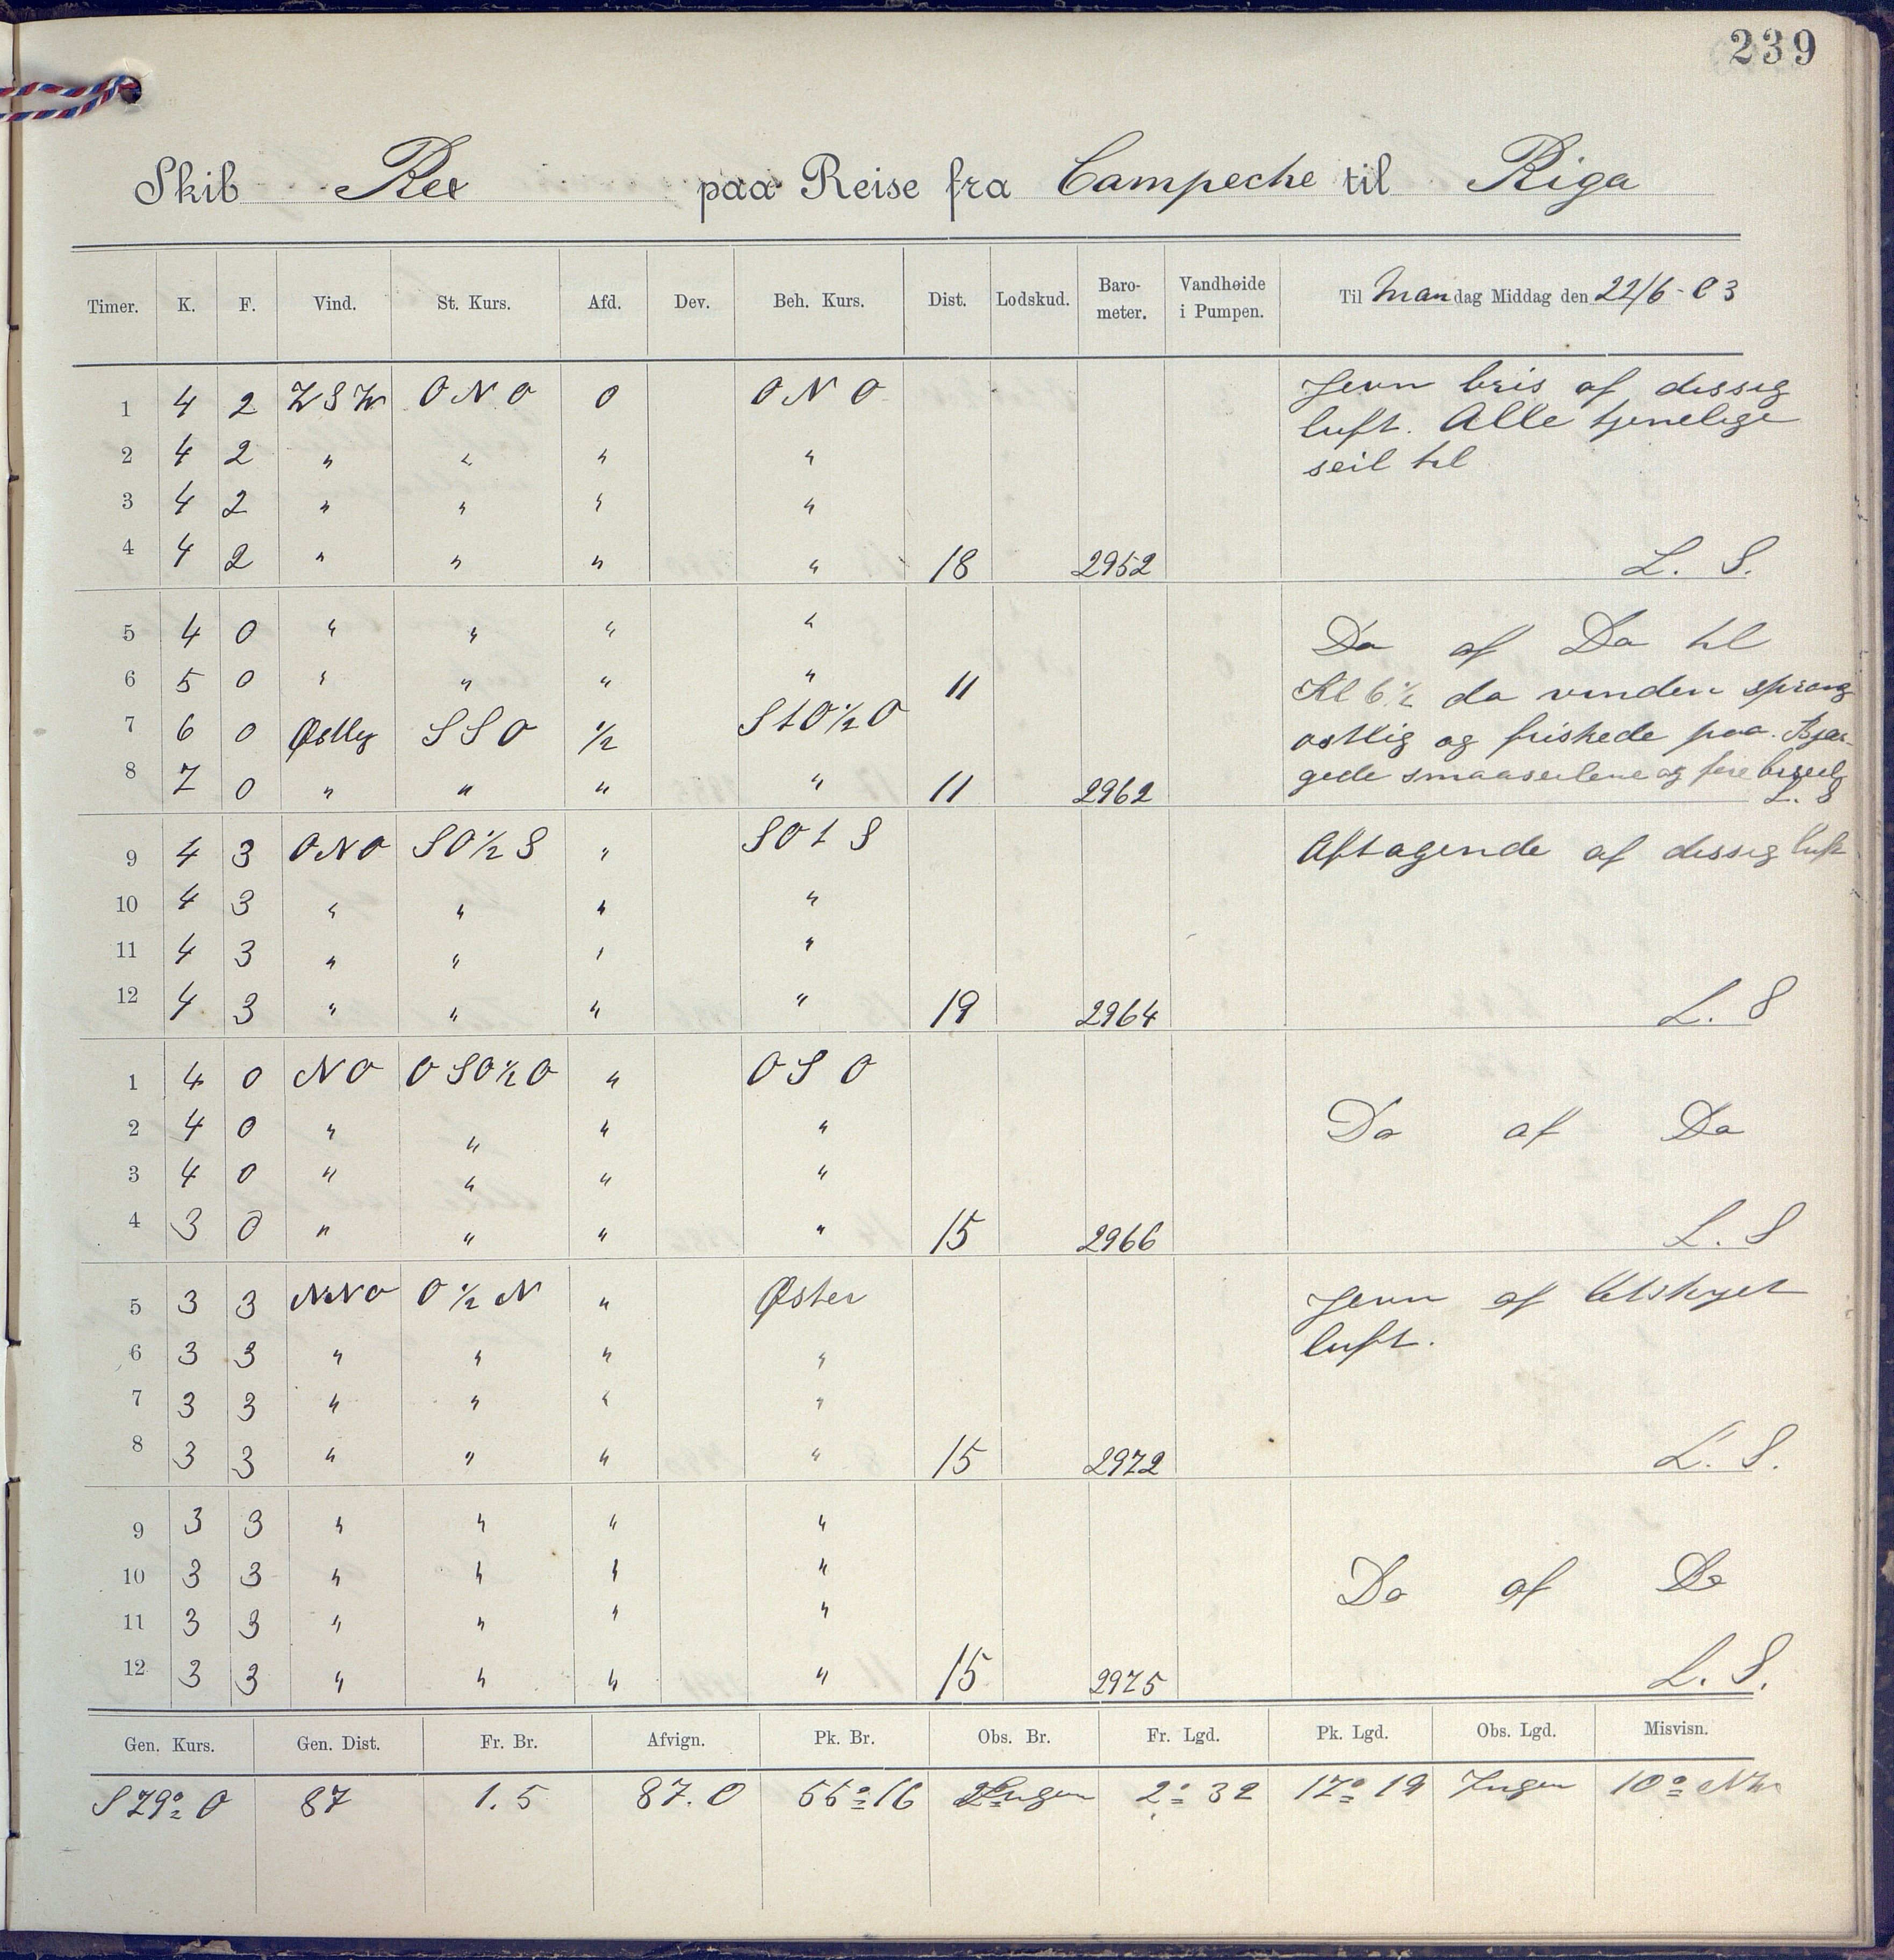 239
Skib Rex paa Reise fra Campeche til Riga
Timer. K. F. Vind. St. Kurs. Afd. Dev. Beh. Kurs. Dist. Lodskud. Baro-meter. Vandhøide i Pumpen. Til Mandag Middag den 22/6-03
1 4 2 WSW ONO 0 ONO Jevn bris af dissig
luft. Alle tjenelige
2 4 2 " " " " seil til
3 4 2 " " " "
4 4 2 " " " " 18 2952 L. S.
5 4 0 " " " " Do af Do til
6 5 0 " " " " 11 Kl 6 1/2 da vinden sprang
7 6 0 Østlig SSO 1/2 StO 1/2 O østlig og friskede paa. Bjær-
8 7 0 " " " " 11 2962 gede smaaseilene og
L. S
9 4 3 ONO SO 1/2 S " SOtS Aftagende af dissig luft
10 4 3 " " " "
11 4 3 " " " "
12 4 3 " " " " 19 2964 L. S
1 4 0 NO OSO 1/2 O " OSO
2 4 0 " " " " Do af Do
3 4 0 " " " "
4 3 0 " " " " 15 2966 L. S
5 3 3 NNO O 1/2 N " Øster Jevn af letskyet
6 3 3 " " " " luft.
7 3 3 " " " "
8 3 3 " " " " 15 2972 L. S.
9 3 3 " " " "
10 3 3 " " " " Do af Do
11 3 3 " " " "
12 3 3 " " " " 15 2975 L. S.
Gen. Kurs. Gen. Dist. Fr. Br. Afvign. Pk. Br. Obs. Br. Fr. Lgd. Pk. Lgd. Obs. Lgd. Misvisn.
S 79° O 87 1.5 87.0 56° 16 Ingen 2° 32 17° 19 Ingen 10° NW